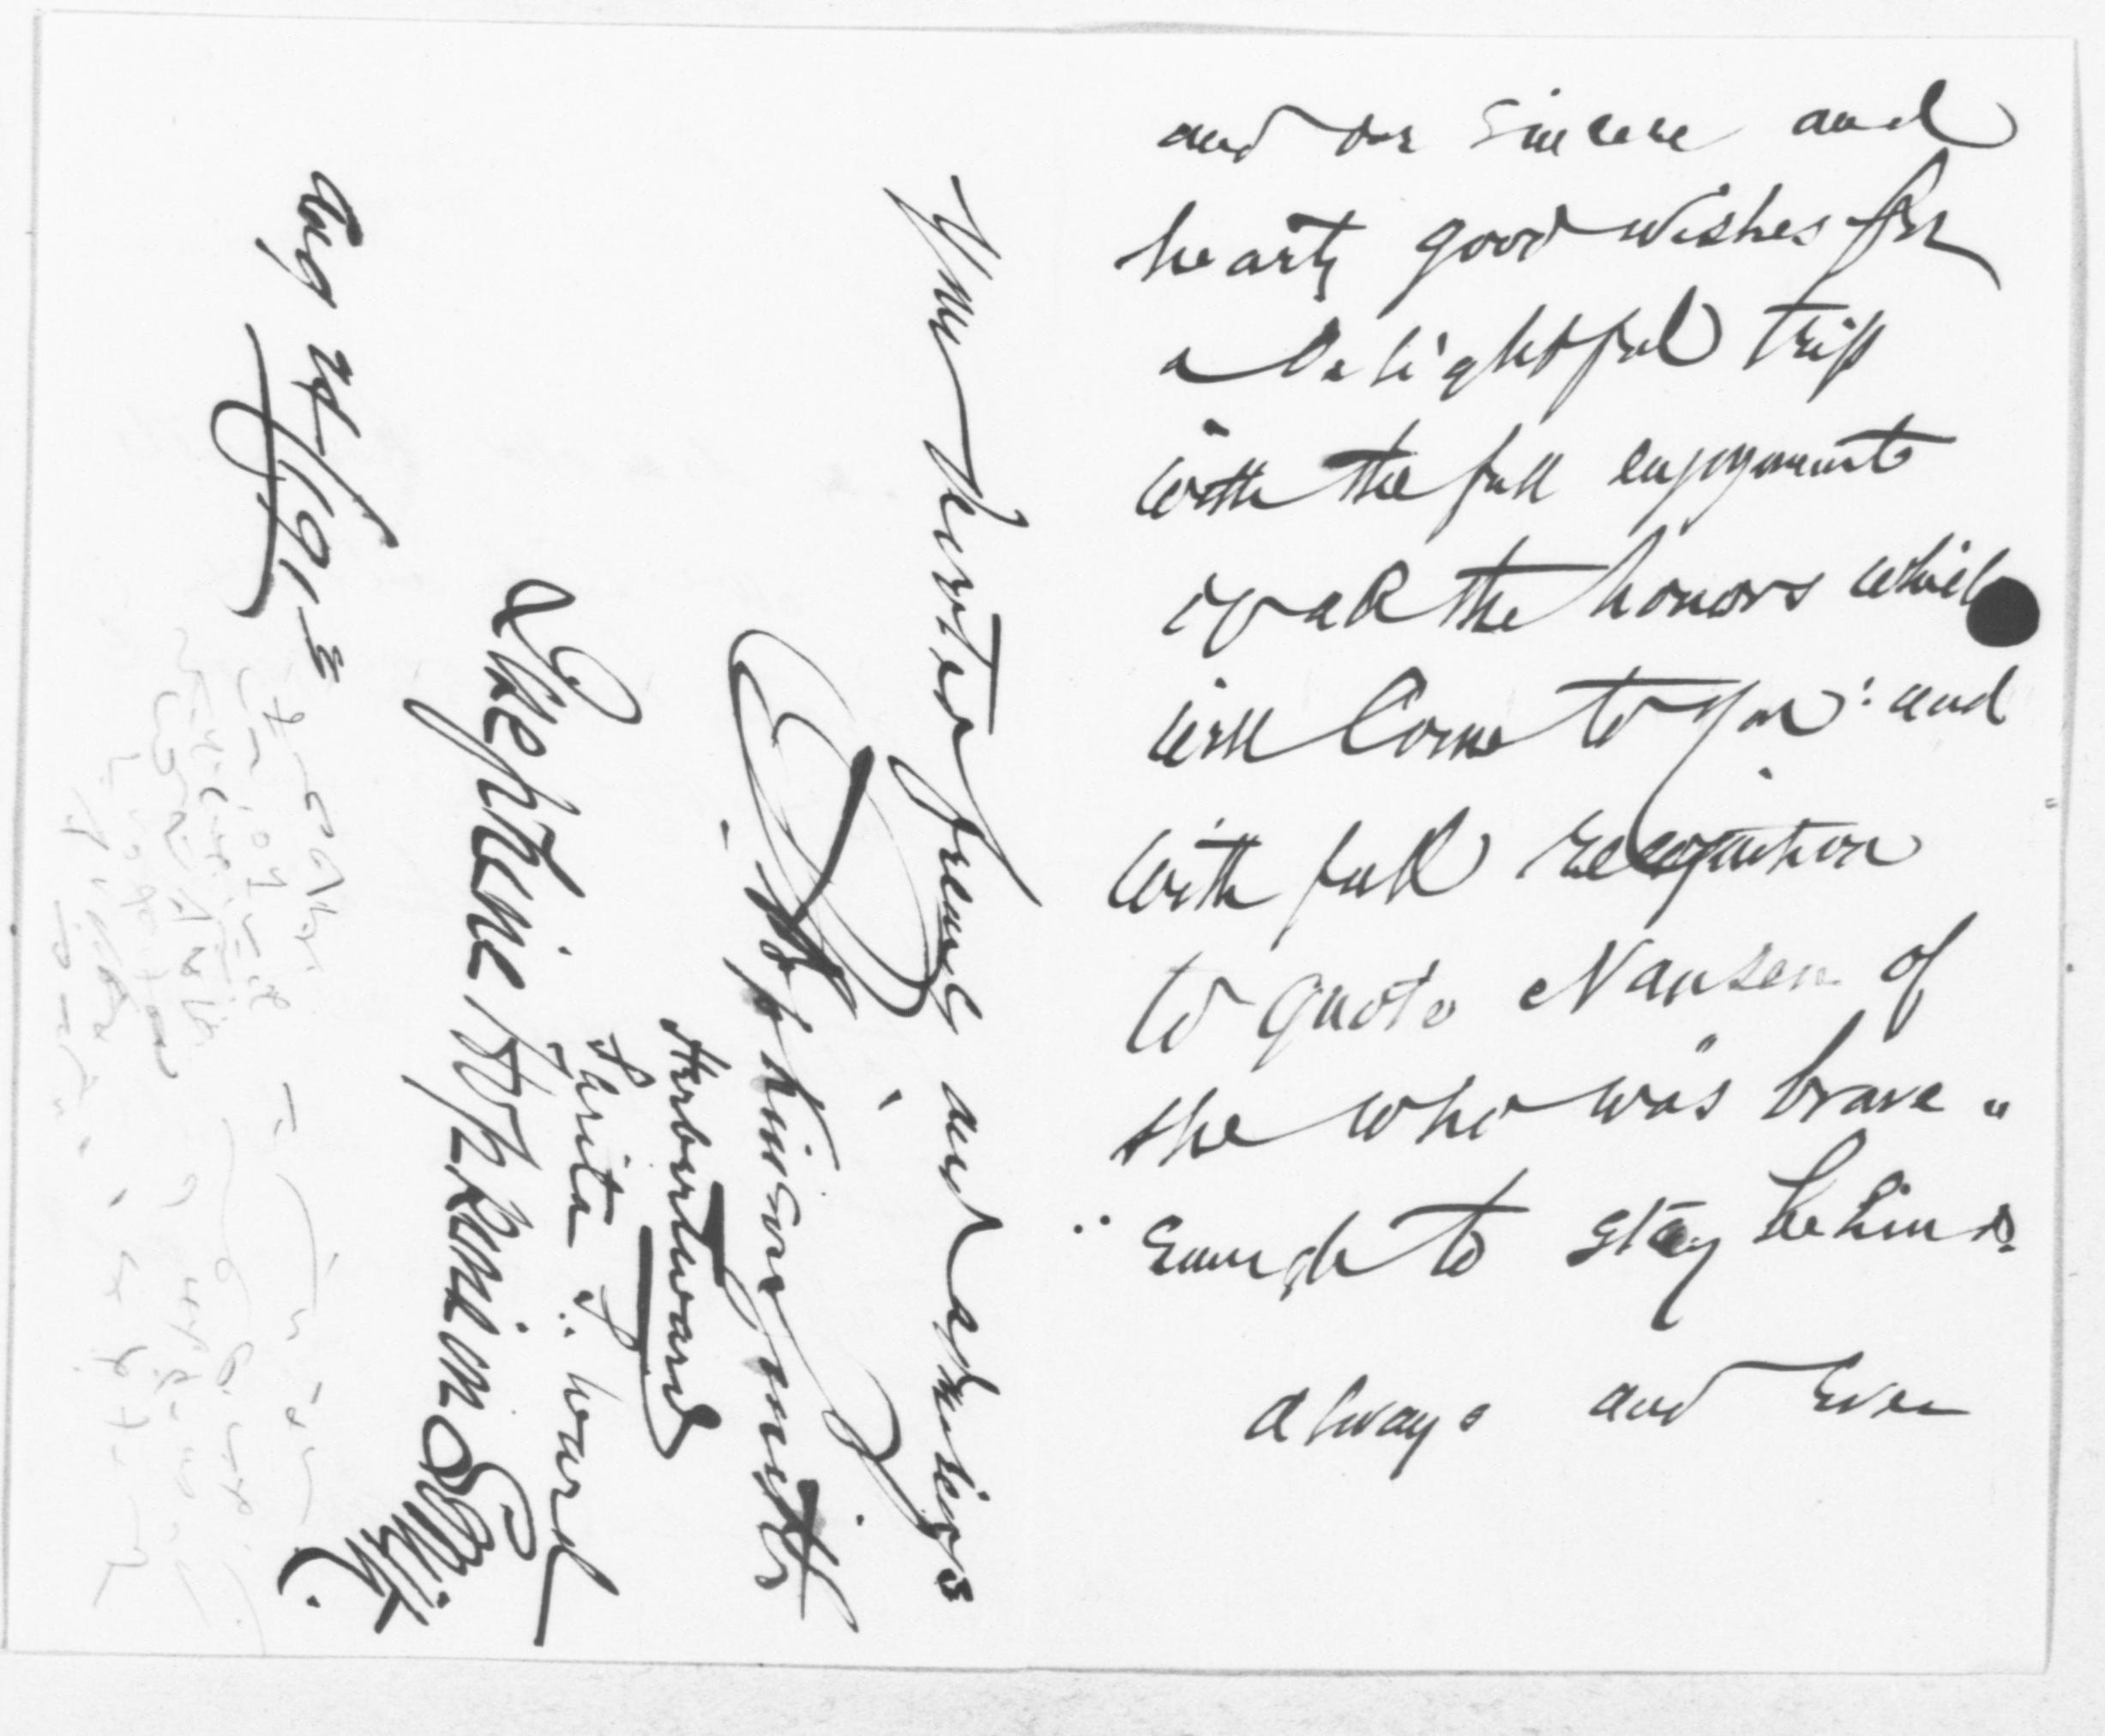 and our sincere and
hearty good wishes for
a delightful trip
with the full enjoyment
of all the honors which
will come to you: and
with full recognition
to quote Nansen of
"she who was brave"
enough to stay behind.
always and ever
Your devoted friends and admirers
F. Hopkinson Smith
Herbert Ward
Sarita S. Ward
Josephine Hopkinson Smith.
Aug 24/1913